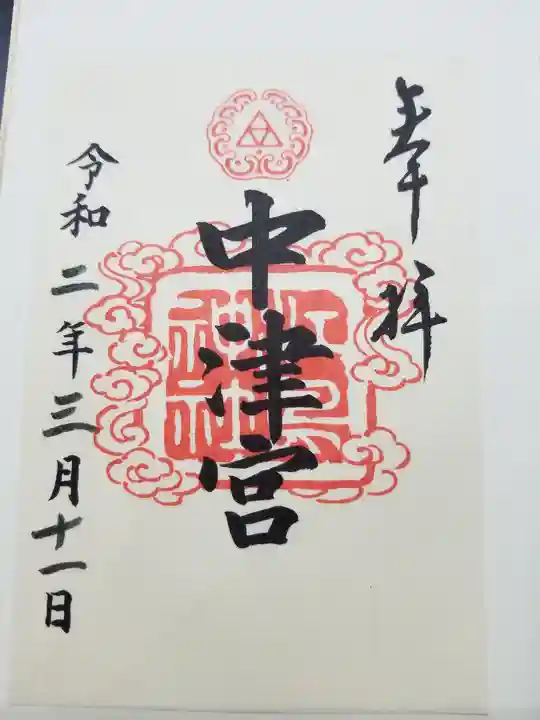 奉拝
中津宮
令和二年三月十一日